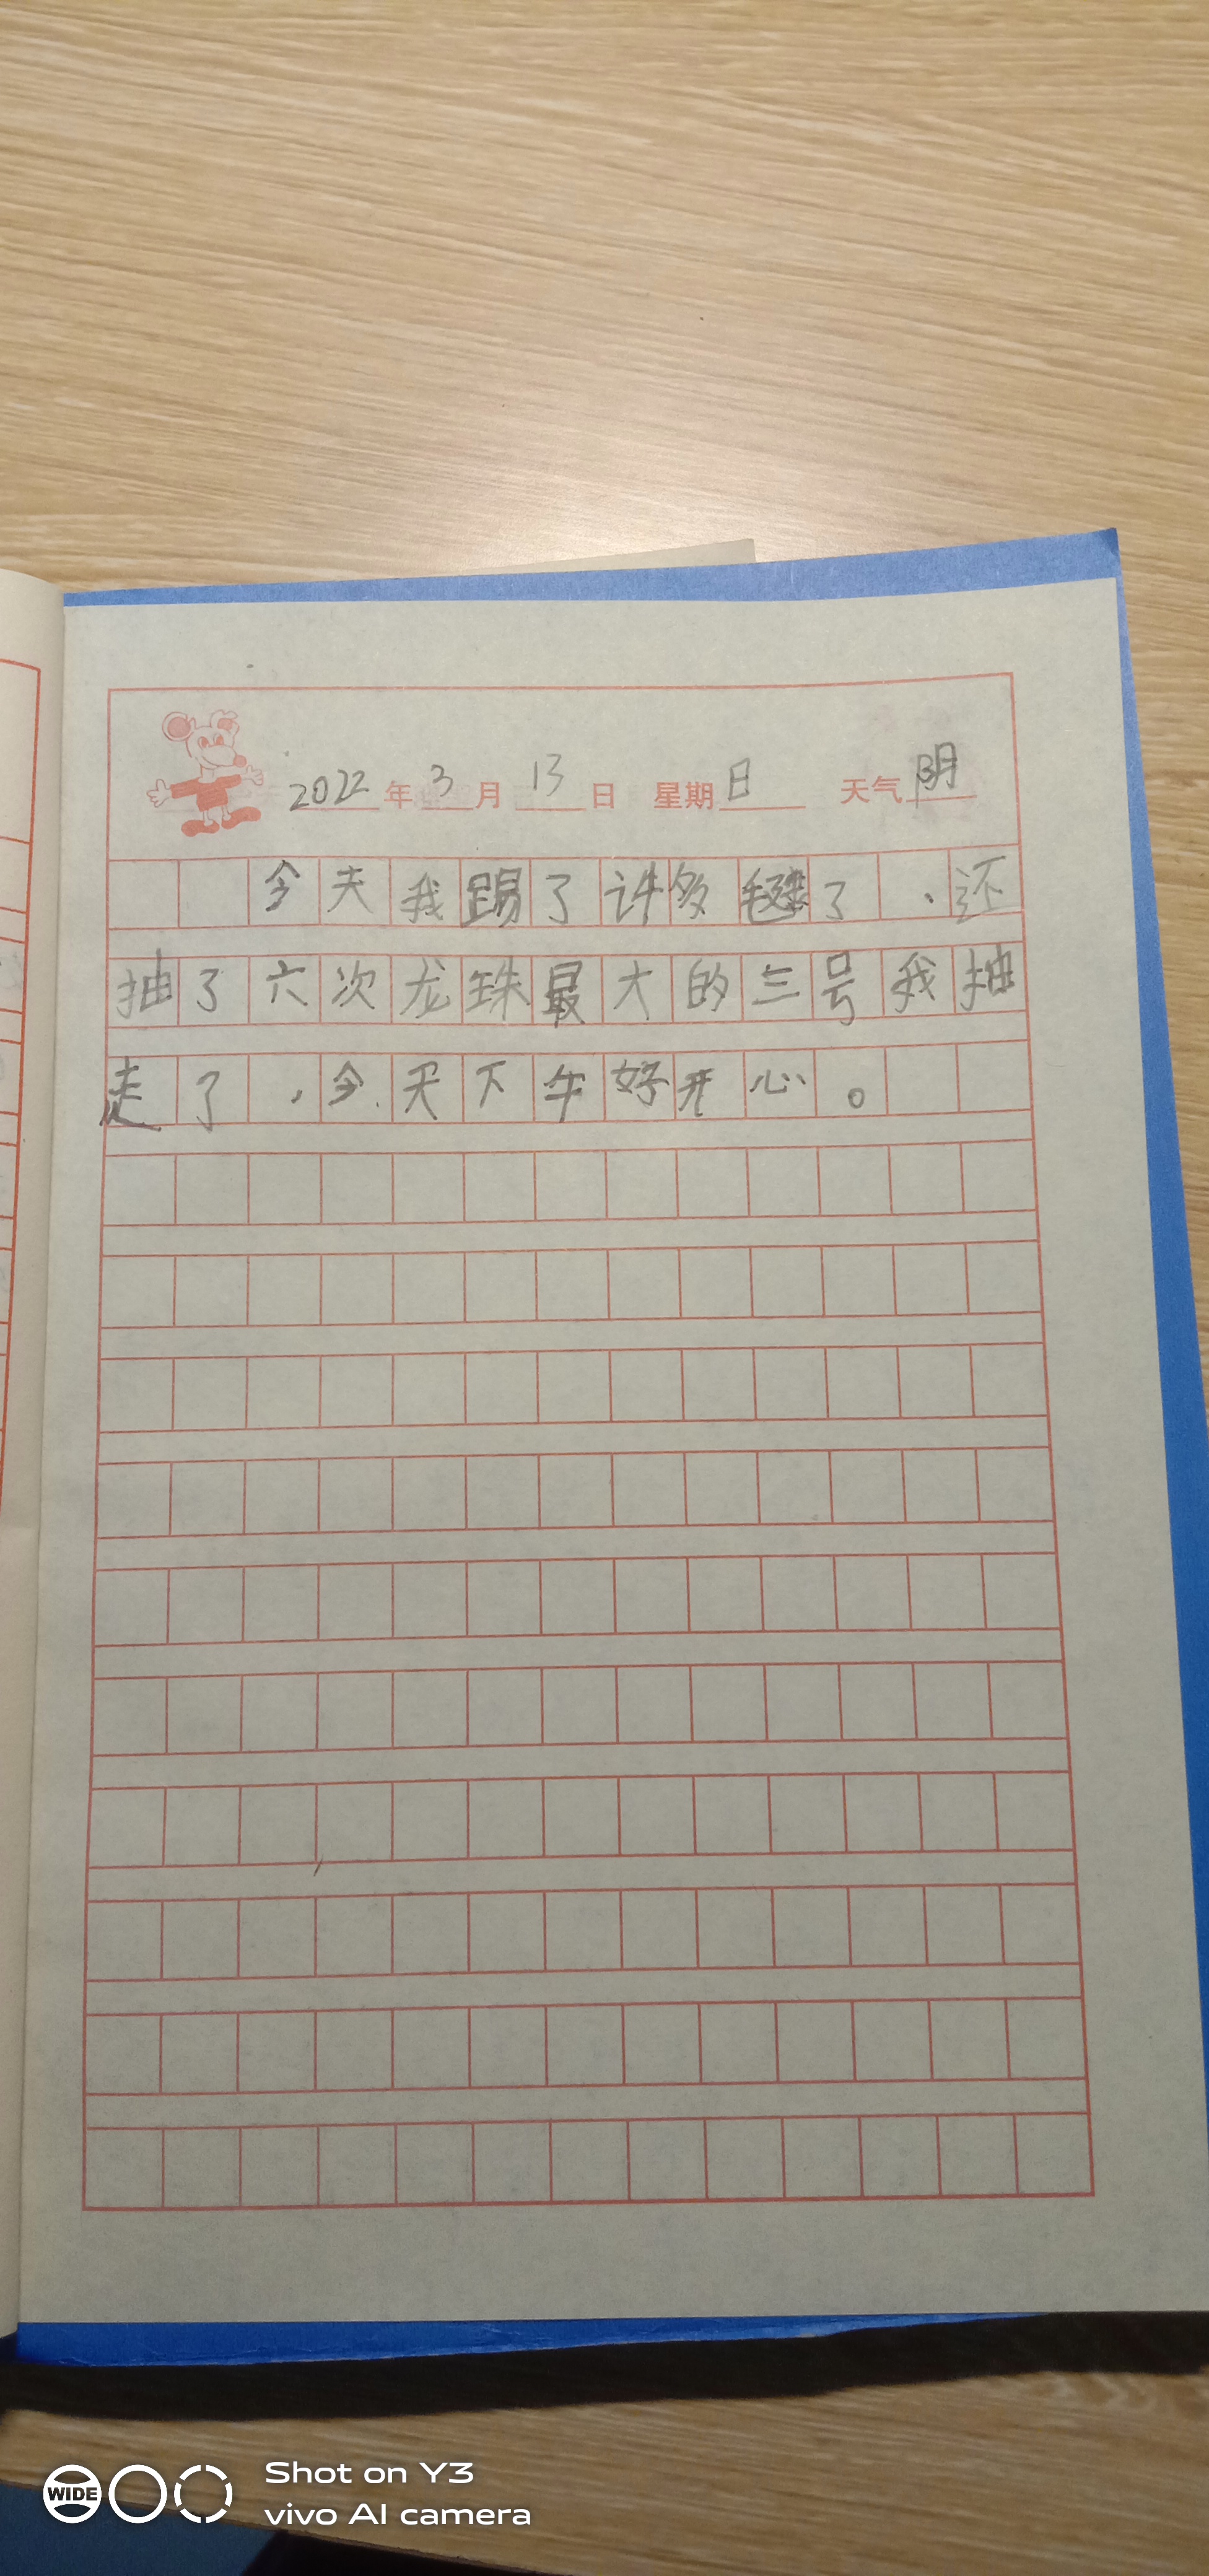 2022年3月13日 星期日 天气阴
今天我踢了许多毽了、还
抽了六次龙珠最大的三号我抽
走了,今天下午好开心。
WIDE
Shot on Y3
vivo AI camera